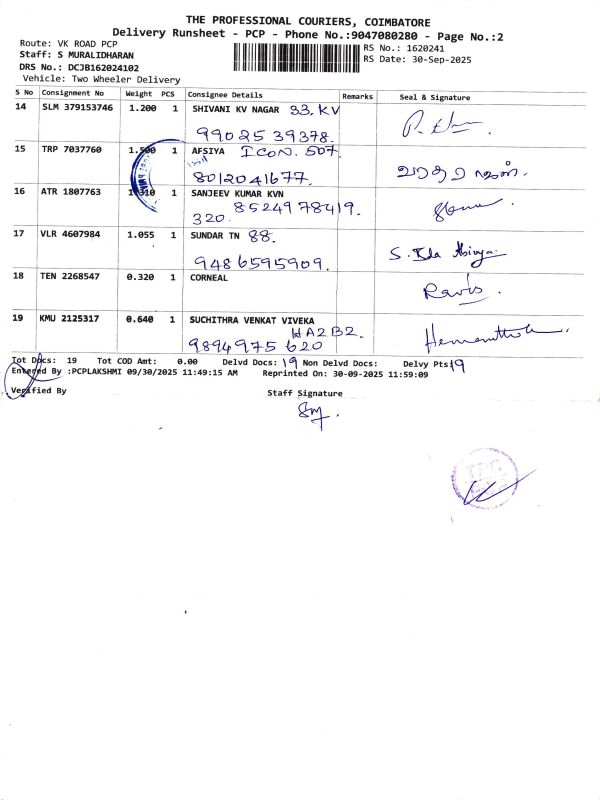 THE PROFESSIONAL COURIERS, COIMBATORE
Delivery Runsheet - PCP - Phone No.:9047080280 - Page No.:2
Route: VK ROAD PCP
RS No.: 1620241
Staff: S MURALIDHARAN
RS Date: 30-Sep-2025
DRS No.: DCJB162024102
Vehicle: Two Wheeler Delivery
S No Consignment No Weight PCS Consignee Details Remarks Seal & Signature
14 SLM 379153746 1.200 1 SHIVANI KV NAGAR 33, KV
9902539378.
15 TRP 7037760 1.500 1 AFSIYA ICON. 507.
8012041677.
16 ATR 1807763 1 SANJEEV KUMAR KVN
320. 8524978419.
17 VLR 4607984 1.055 1 SUNDAR TN 88.
9486595909.
18 TEN 2268547 0.320 1 CORNEAL
19 KMU 2125317 0.640 1 SUCHITHRA VENKAT VIVEKA
HA2B2.
9894975620
Tot Docs: 19 Tot COD Amt: 0.00 Delvd Docs: 19 Non Delvd Docs: Delvy Pts 19
Entered By :PCPLAKSHMI 09/30/2025 11:49:15 AM Reprinted On: 30-09-2025 11:59:09
Verified By Staff Signature